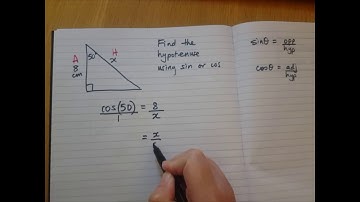 A
8
cm
50°
H
x
Find the
hypotenuse
using sin or cos
sinθ = opp/hyp
cosθ = adj/hyp
cos(50)/1 = 8/x
= x/